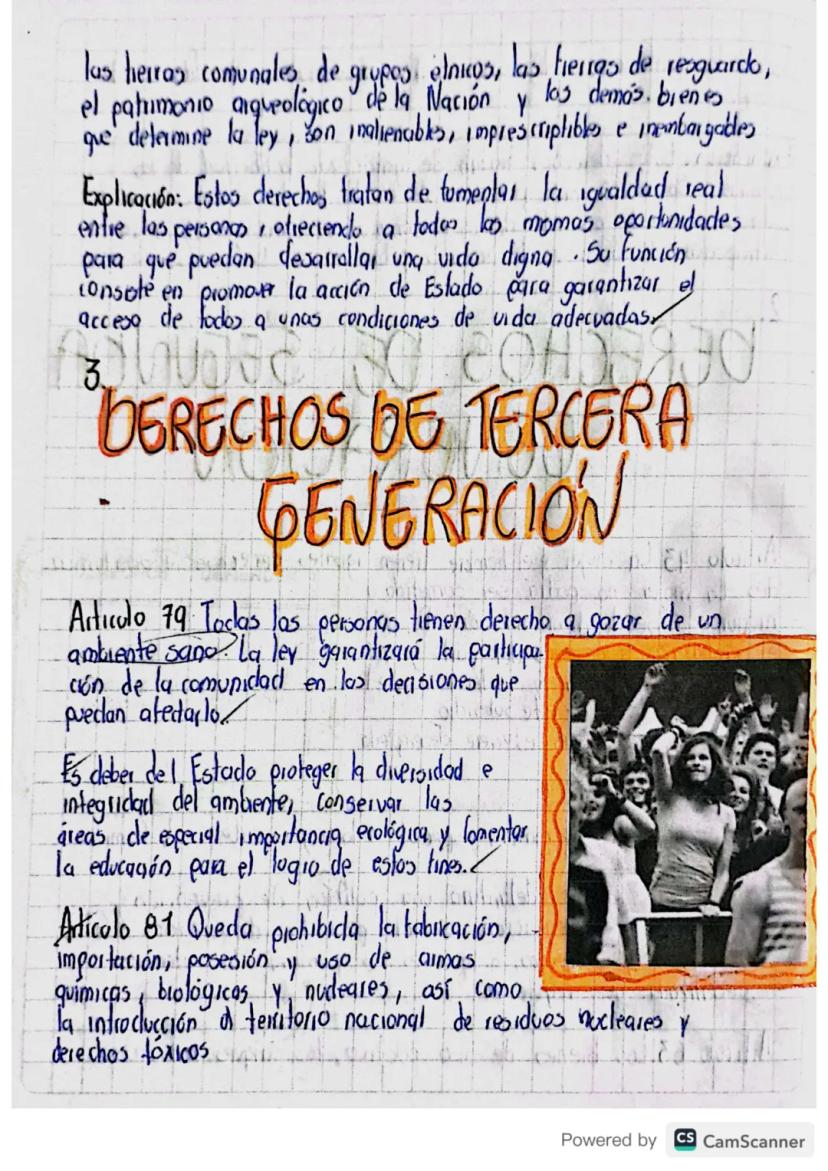 las tierras comunales de grupos étnicos, las tierras de resguardo,
el patrimonio arqueológico de la Nación y los demás bienes
que determine la ley, son inalienables, imprescriptibles e inembargables
Explicación: Estos derechos tratan de fomentar la igualdad real
entre las personas, ofreciendo a todos las mismas oportunidades
para que puedan desarrollar una vida digna. Su función
consiste en promover la acción de Estado para garantizar el
acceso de todos a unas condiciones de vida adecuadas.
3.
DERECHOS DE TERCERA
GENERACIÓN
Articulo 79 Todas las personas tienen derecho a gozar de un
ambiente sano. La ley garantizará la participa-
ción de la comunidad en las decisiones que
puedan afectarlo.
Es deber del Estado proteger la diversidad e
integridad del ambiente, conservar las
áreas de especial importancia ecológica y fomentar
la educación para el logro de estos fines.
Articulo 81 Queda prohibida la fabricación,
importación, posesión y uso de armas
químicas, biológicas y nucleares, así como
la introducción al territorio nacional de residuos nucleares y
derechos tóxicos
Powered by CS CamScanner